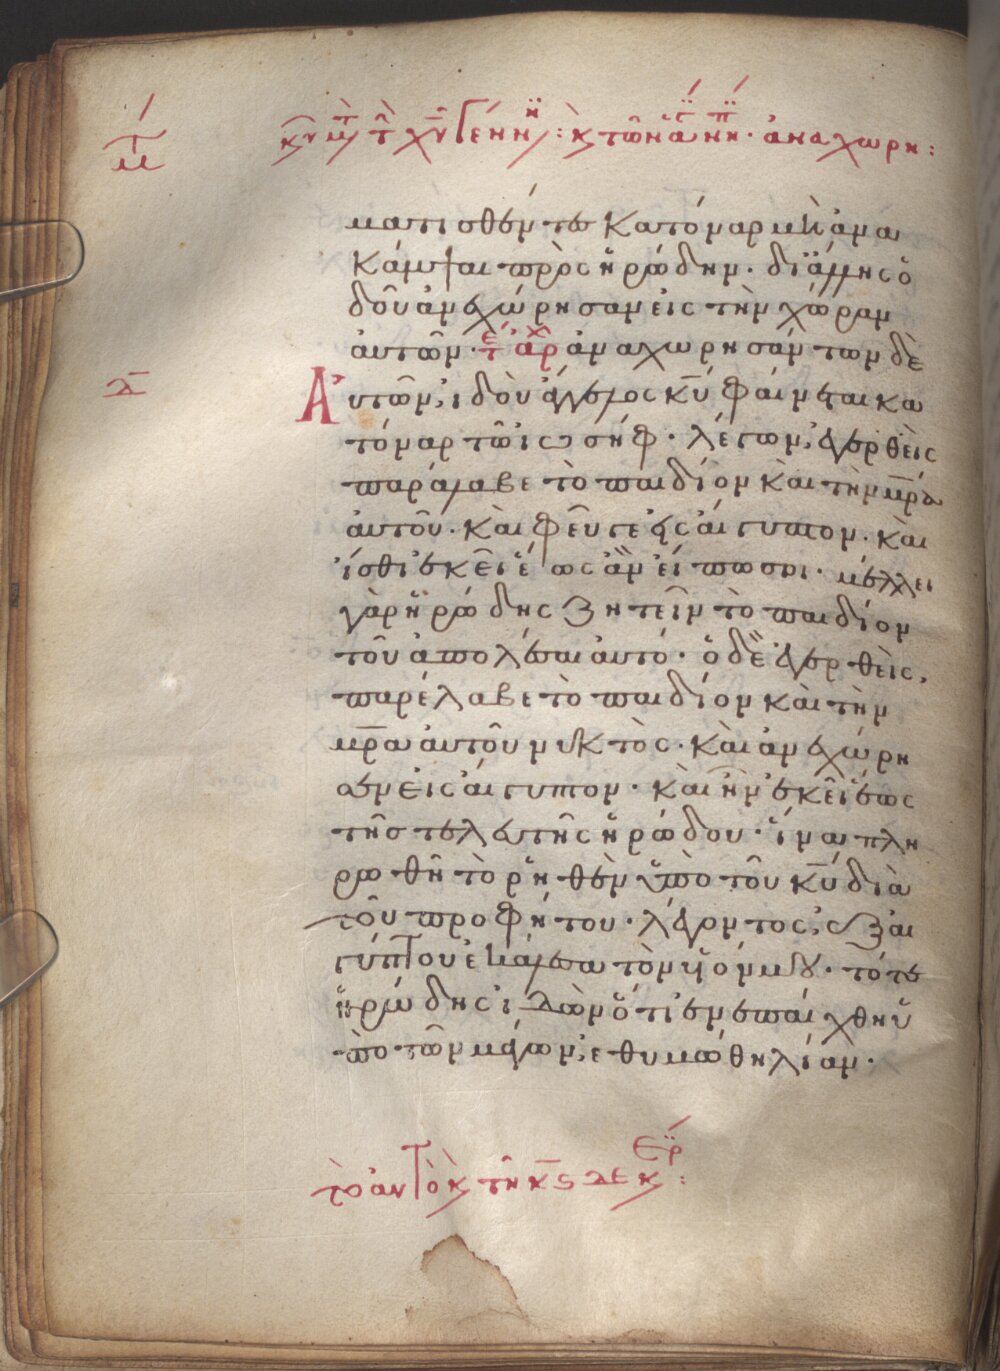 ματισθέντες κατόναρ μὴ ἀνα
κάμψαι πρὸς ἡρώδην· δι ἄλλης ὁ
δοῦ ἀνεχώρησαν εἰς τὴν χώραν
αὐτῶν· ἀναχωρησάντων δὲ
Αὐτῶν, ἰδοὺ ἄγγελος κυ φαίνεται κα
τόναρ τῶ ἰωσήφ· λέγων, ἐγερθεὶς
παράλαβε τὸ παιδίον καὶ τὴν μρα
αὐτοῦ· καὶ φεῦγε εἰς αἴγυπτον· καὶ
ἴσθι ἐκεῖ ἕως ἂν εἴπω σοι· μέλλει
γὰρ ἡρώδης ζητεῖν τὸ παιδίον
τοῦ ἀπολέσαι αὐτό· ὁ δὲ ἐγερθεὶς,
παρέλαβε τὸ παιδίον καὶ τὴν
μρα αὐτοῦ νυκτὸς· καὶ ἀνεχώρη
σεν εἰς αἴγυπτον· καὶ ἦν ἐκεῖ ἕως
τῆς τελευτῆς ἡρώδου· ἵνα πλη
ρωθῆ τὸ ῥηθὲν ὑπὸ τοῦ κυ διὰ
τοῦ προφήτου· λέγοντος, ἐξ αἰ
γύπτου ἐκάλεσα τὸν υἱόν μου· τότε
ἡρώδης ἰδὼν ὅτι ἐνεπαίχθη ὑ
πὸ τῶν μάγων, ἐθυμώθη λίαν·